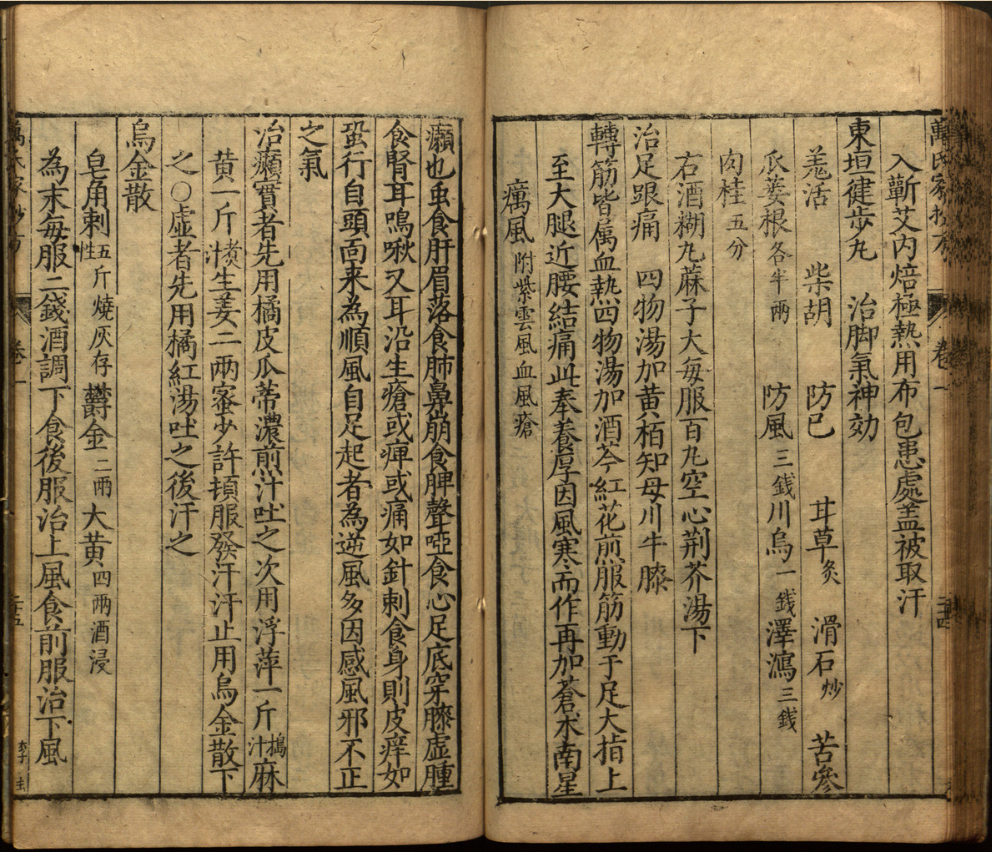 萬氏家抄方 卷一
入蘄艾內焙極熱用布包患處盖被取汗
東垣健步丸 治脚氣神効
羗活 柴胡 防己 甘草炙 滑石炒 苦參
瓜蔞根各半兩 防風三錢川烏一錢澤瀉三錢
肉桂五分
右酒糊丸蔴子大每服百丸空心荆芥湯下
治足跟痛 四物湯加黄栢知母川牛膝
轉筋皆属血熱四物湯加酒芩紅花煎服筋動于足大指上
至大腿近腰結痛此奉養厚因風寒而作再加蒼朮南星
癘風附紫雲風血風瘡
癩也䖝食肝眉落食肺鼻崩食脾聲啞食心足底穿膝虚腫
食腎耳鳴啾又耳沿生瘡或痺或痛如針刺食身則皮痒如
蛩行自頭面来為順風自足起者為逆風多因感風邪不正
之氣
治癩實者先用橘皮瓜蒂濃煎汁吐之次用浮萍一斤搗汁麻
黄一斤煑汁生姜二兩蜜少許頓服發汗汗止用烏金散下
之〇虚者先用橘紅湯吐之後汗之
烏金散
皂角刺五斤燒灰存性欝金二兩大黄四兩酒浸
為末每服二錢酒調下食後服治上風食前服治下風
卷一 二十五 李圭